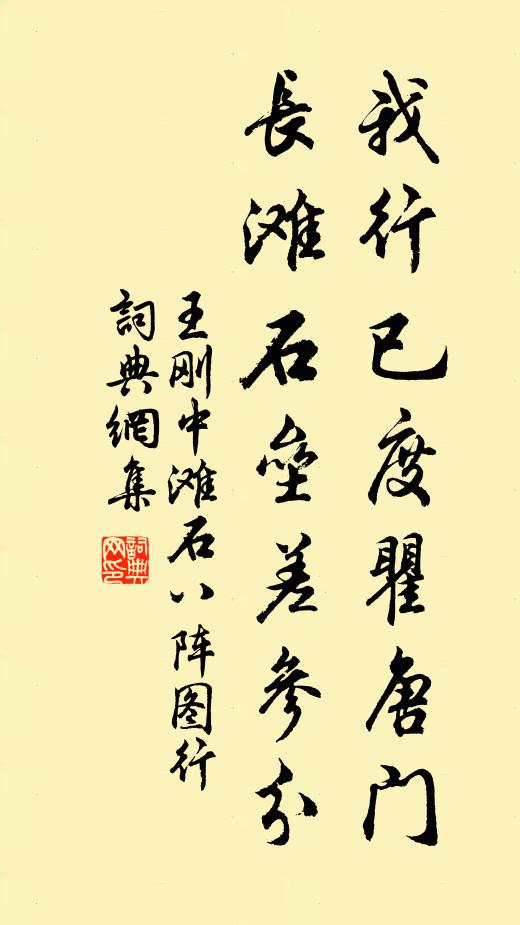 我行已度瞿唐门
長滩石垒差参分
王刚中滩石八阵图行
詞典網集
詞典网印